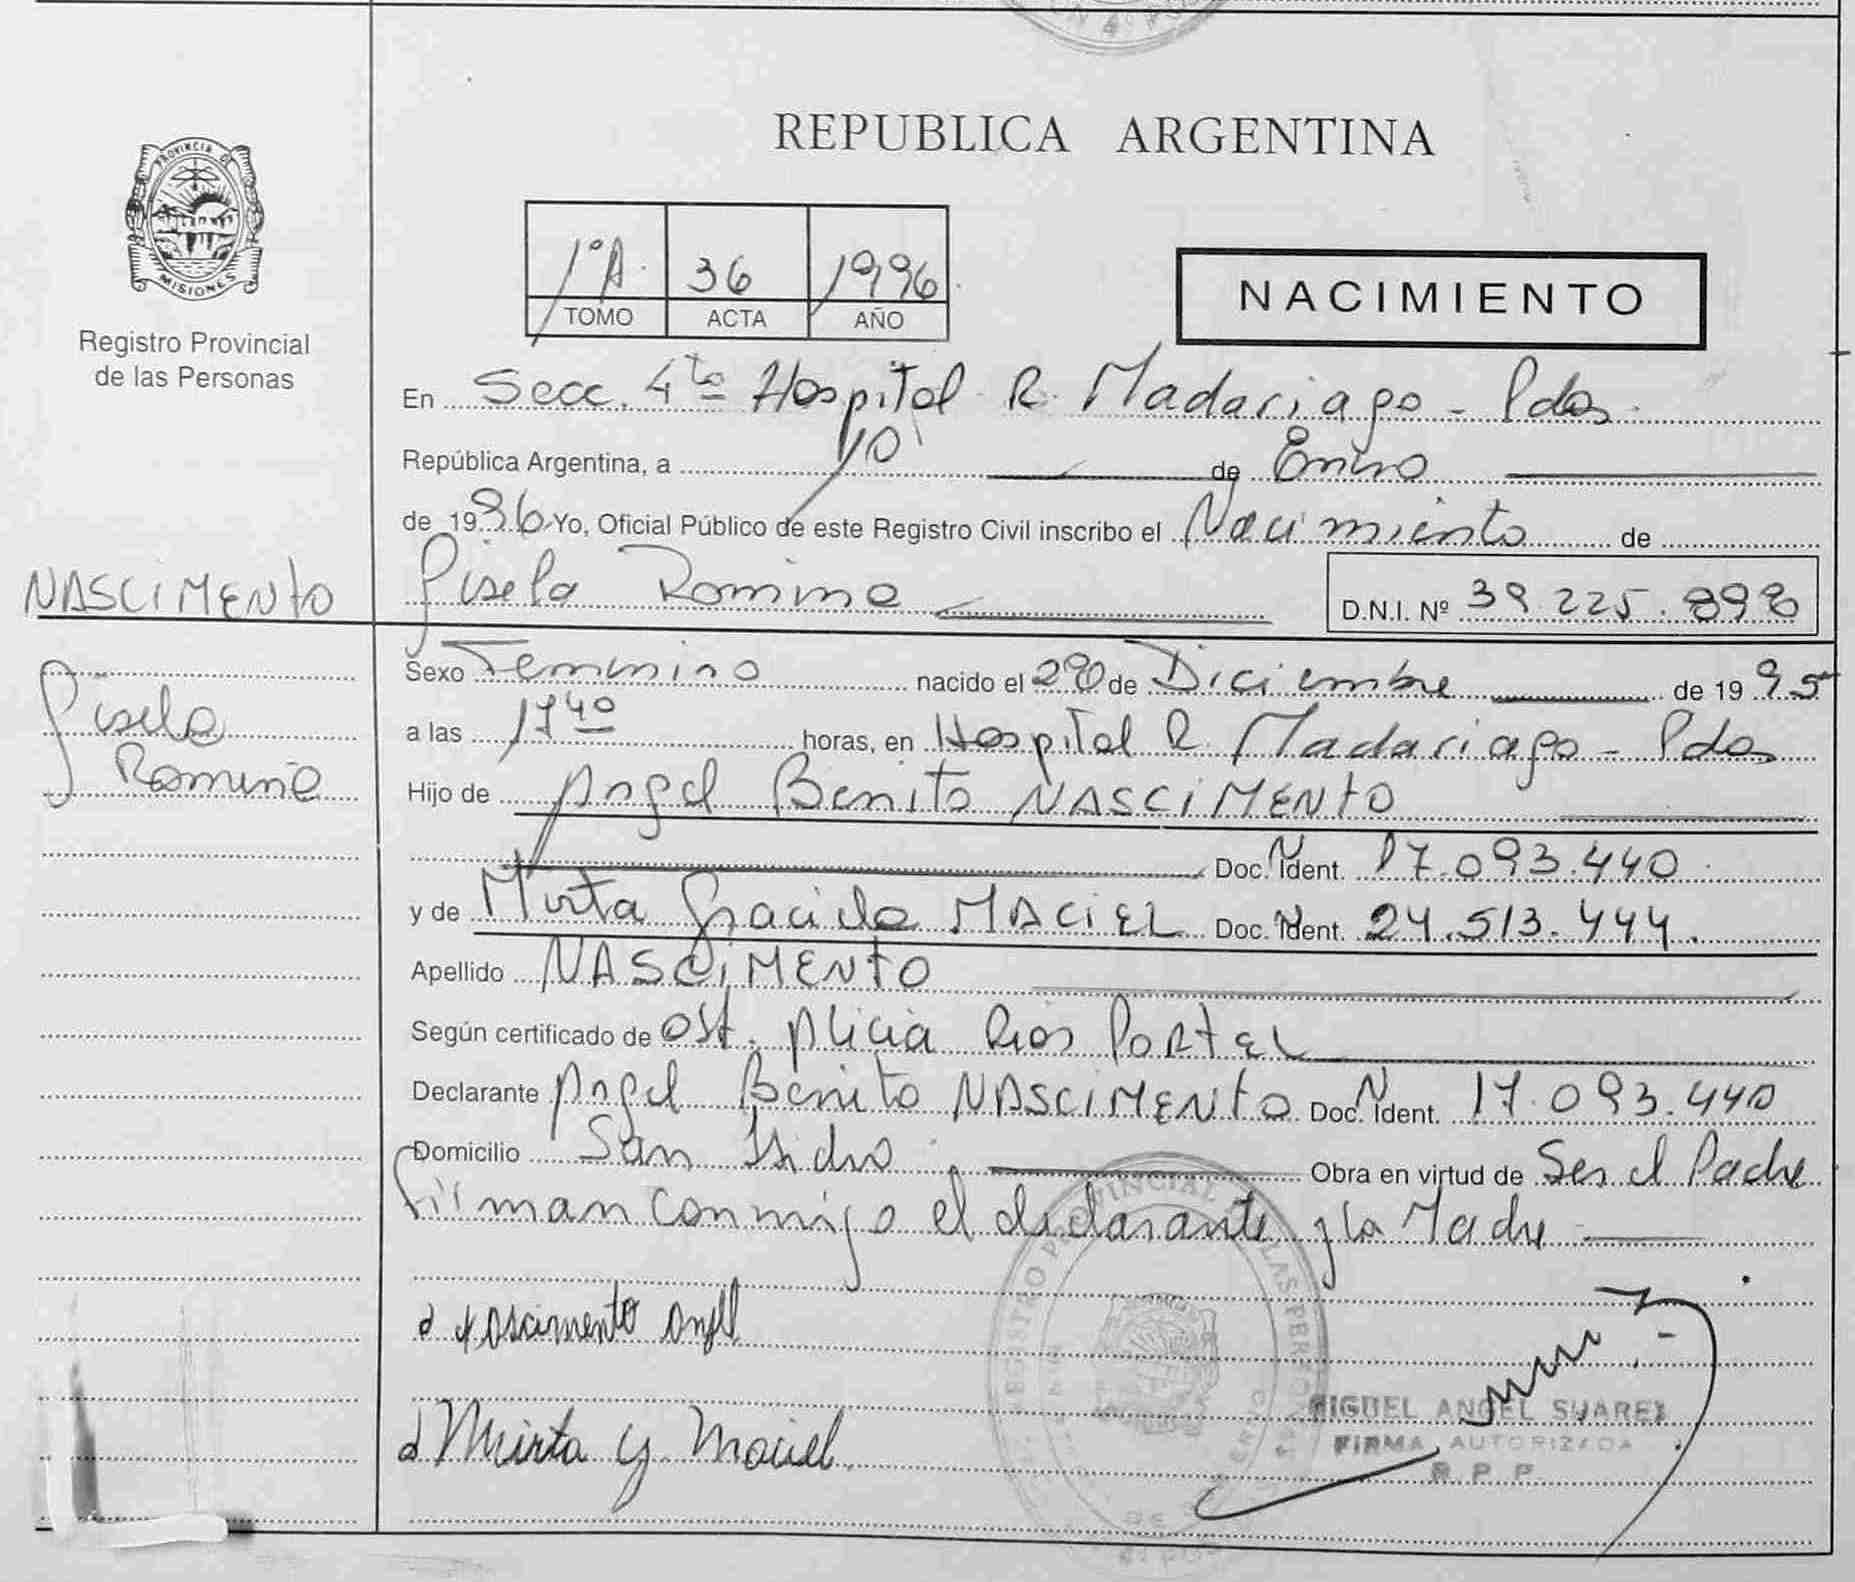 REPUBLICA ARGENTINA
PROVINCIA DE MISIONES
Registro Provincial
de las Personas
1ºA 36 1996
TOMO ACTA AÑO
NACIMIENTO
En Secc. 4ta Hospital R. Madariaga - Pdas.
República Argentina, a 10 de Enero
de 1996 Yo, Oficial Público de este Registro Civil inscribo el Nacimiento de
NASCIMENTO
Gisela Romina
D.N.I. Nº 39.225.898
Gisela
Romina
Sexo Femenino nacido el 28 de Diciembre de 1995
a las 17 40 horas, en Hospital R. Madariaga - Pdas
Hijo de Angel Benito NASCIMENTO
Doc. N Ident. 17.093.440
y de Mirta Graciela MACIEL Doc. N Ident. 24.513.444.
Apellido NASCIMENTO
Según certificado de Ost. Alicia Rios PORTEL
Declarante Angel Benito NASCIMENTO Doc. N Ident. 17.093.440
Domicilio San Isidro Obra en virtud de Ser el Padre
Firman conmigo el declarante y la Madre
Nascimento Angel
Mirta G. Maciel
MIGUEL ANGEL SUAREZ
FIRMA AUTORIZADA
R. P. P.